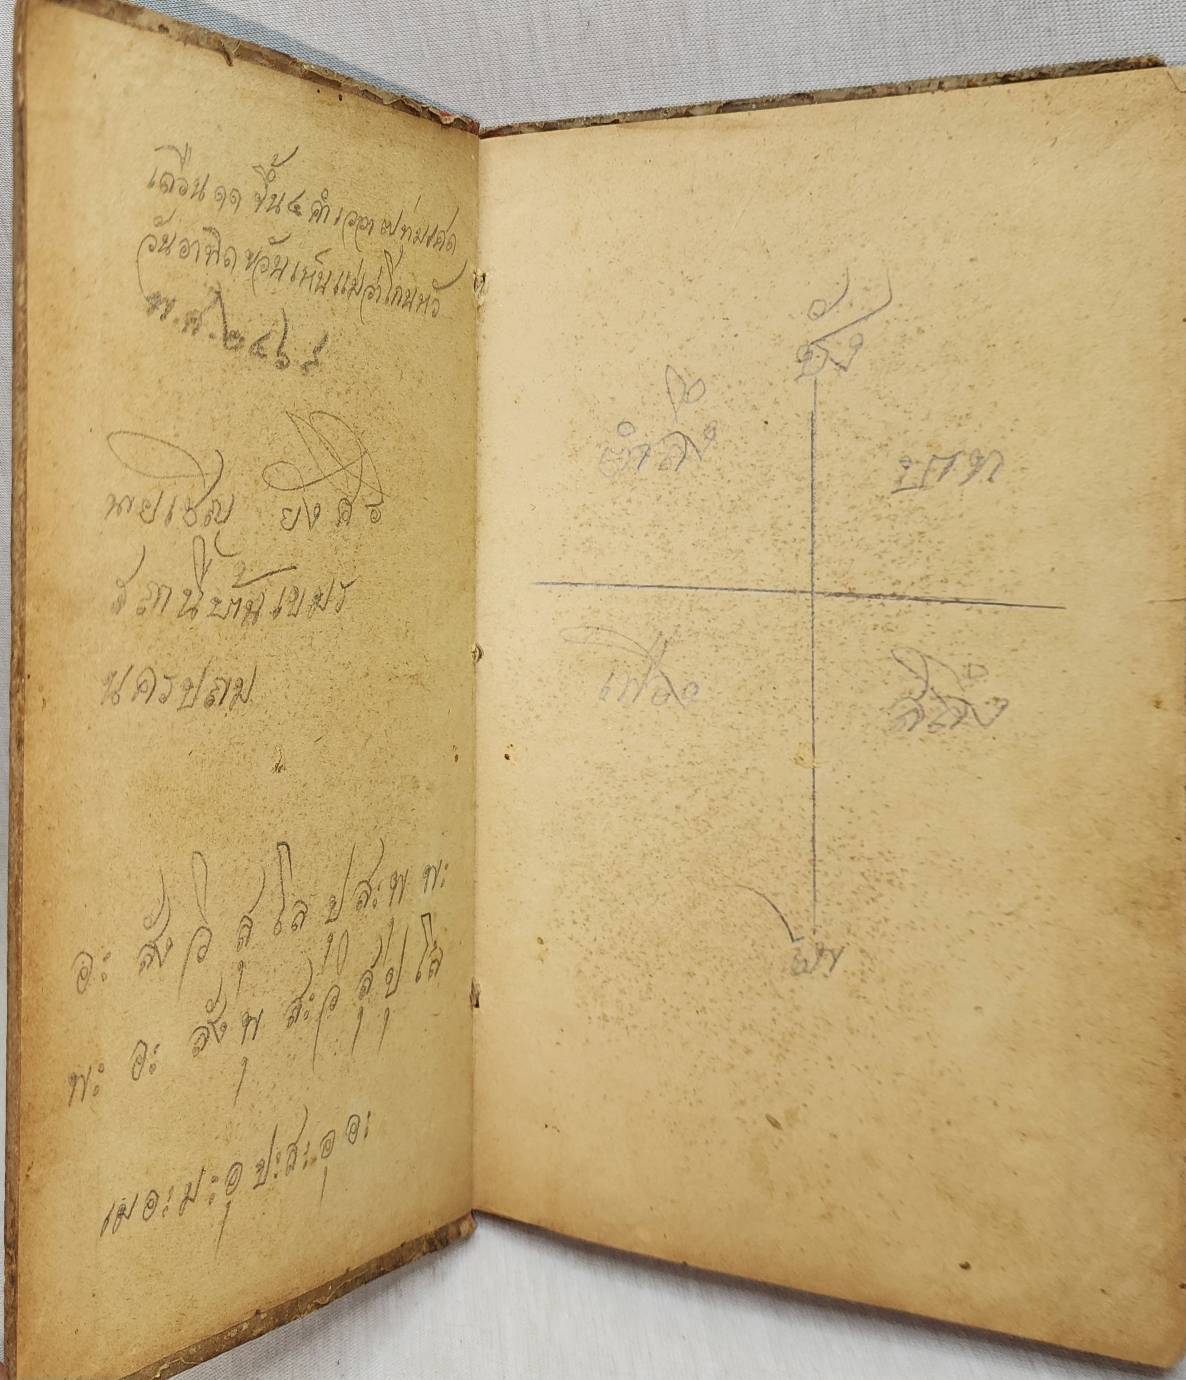 เดือน ๑๑ ขึ้น ๔ ค่ำ เวลา ทุ่มเศด
วันอาทิตย์ ขวันเห็นแม่ว่าโกนหัว
พ.ศ. ๒๔๖๙
นายเชิญ ยิ่งศิริ
สถานีบ้านเขมร
นครปถม
อะ สัง วิ สุ โล ปุ สะ พุ พะ
พะ อะ สัง พุ สะ วิ สุ ปุ โล
เม อะ มะ อุ ปะ สะ อุ อะ
ชั่ง
ตำลึง บาท
เฟื้อง สลึง